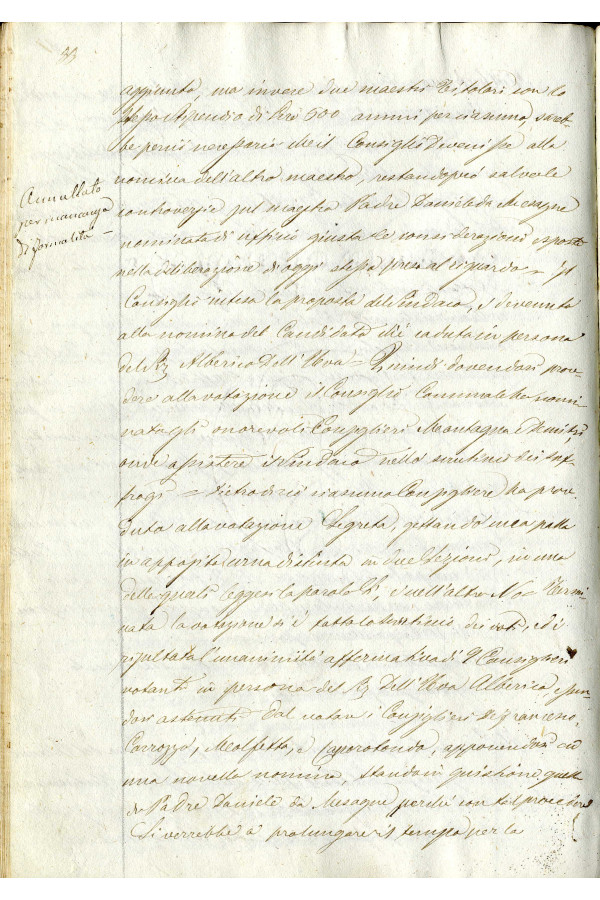 33
aggiunta, ma invece due maestri titolari con lo
stesso stipendio di Lire 500 annui per ciascuno, sareb-
be perciò necessario che il Consiglio Divenisse alla
nomina dell'altro maestro, restando però salve le
controversie sul maestro Padre Daniele da Mesagne
nominato di ufficio giusta le considerazioni esposte
nella deliberazione di oggi stessa presa al riguardo = Il
Consiglio intesa la proposta del Sindaco, è divenuto
alla nomina del Candidato ch'è caduta in persona
del Alberico Dell'Uva = Quindi dovendosi prov-
dere alla votazione il Consiglio Comunale ha nomi-
nato gli onorevoli Consiglieri Montagna e
onde assistere il Sindaco nello scrutinio dei suf-
fragi = Dietro di ciò ciascuno Consigliere ha proce-
duto alla votazione Segreta, gettando una palla
in apposita urna distinta in due Sezioni, in una
delle quali leggesi la parola Sì, e nell'altra No = Termi-
nata la votazione si è fatto lo scrutinio dei voti, ed è
risultata l'unanimità affermativa di 9 Consiglieri
votanti in persona del Dell'Uva Alberico, essen-
dosi astenuti dal votare i Consiglieri Defrancesco,
Carrozzo, Meolfetta, e Caporotondo, opponendosi ad
una novella nomina, stando in quistione quella
di Padre Daniele da Mesagne, perché con tal procedere
Si verrebbe a prolungare il tempo per la
Annullato
per mancanza
di formalità =